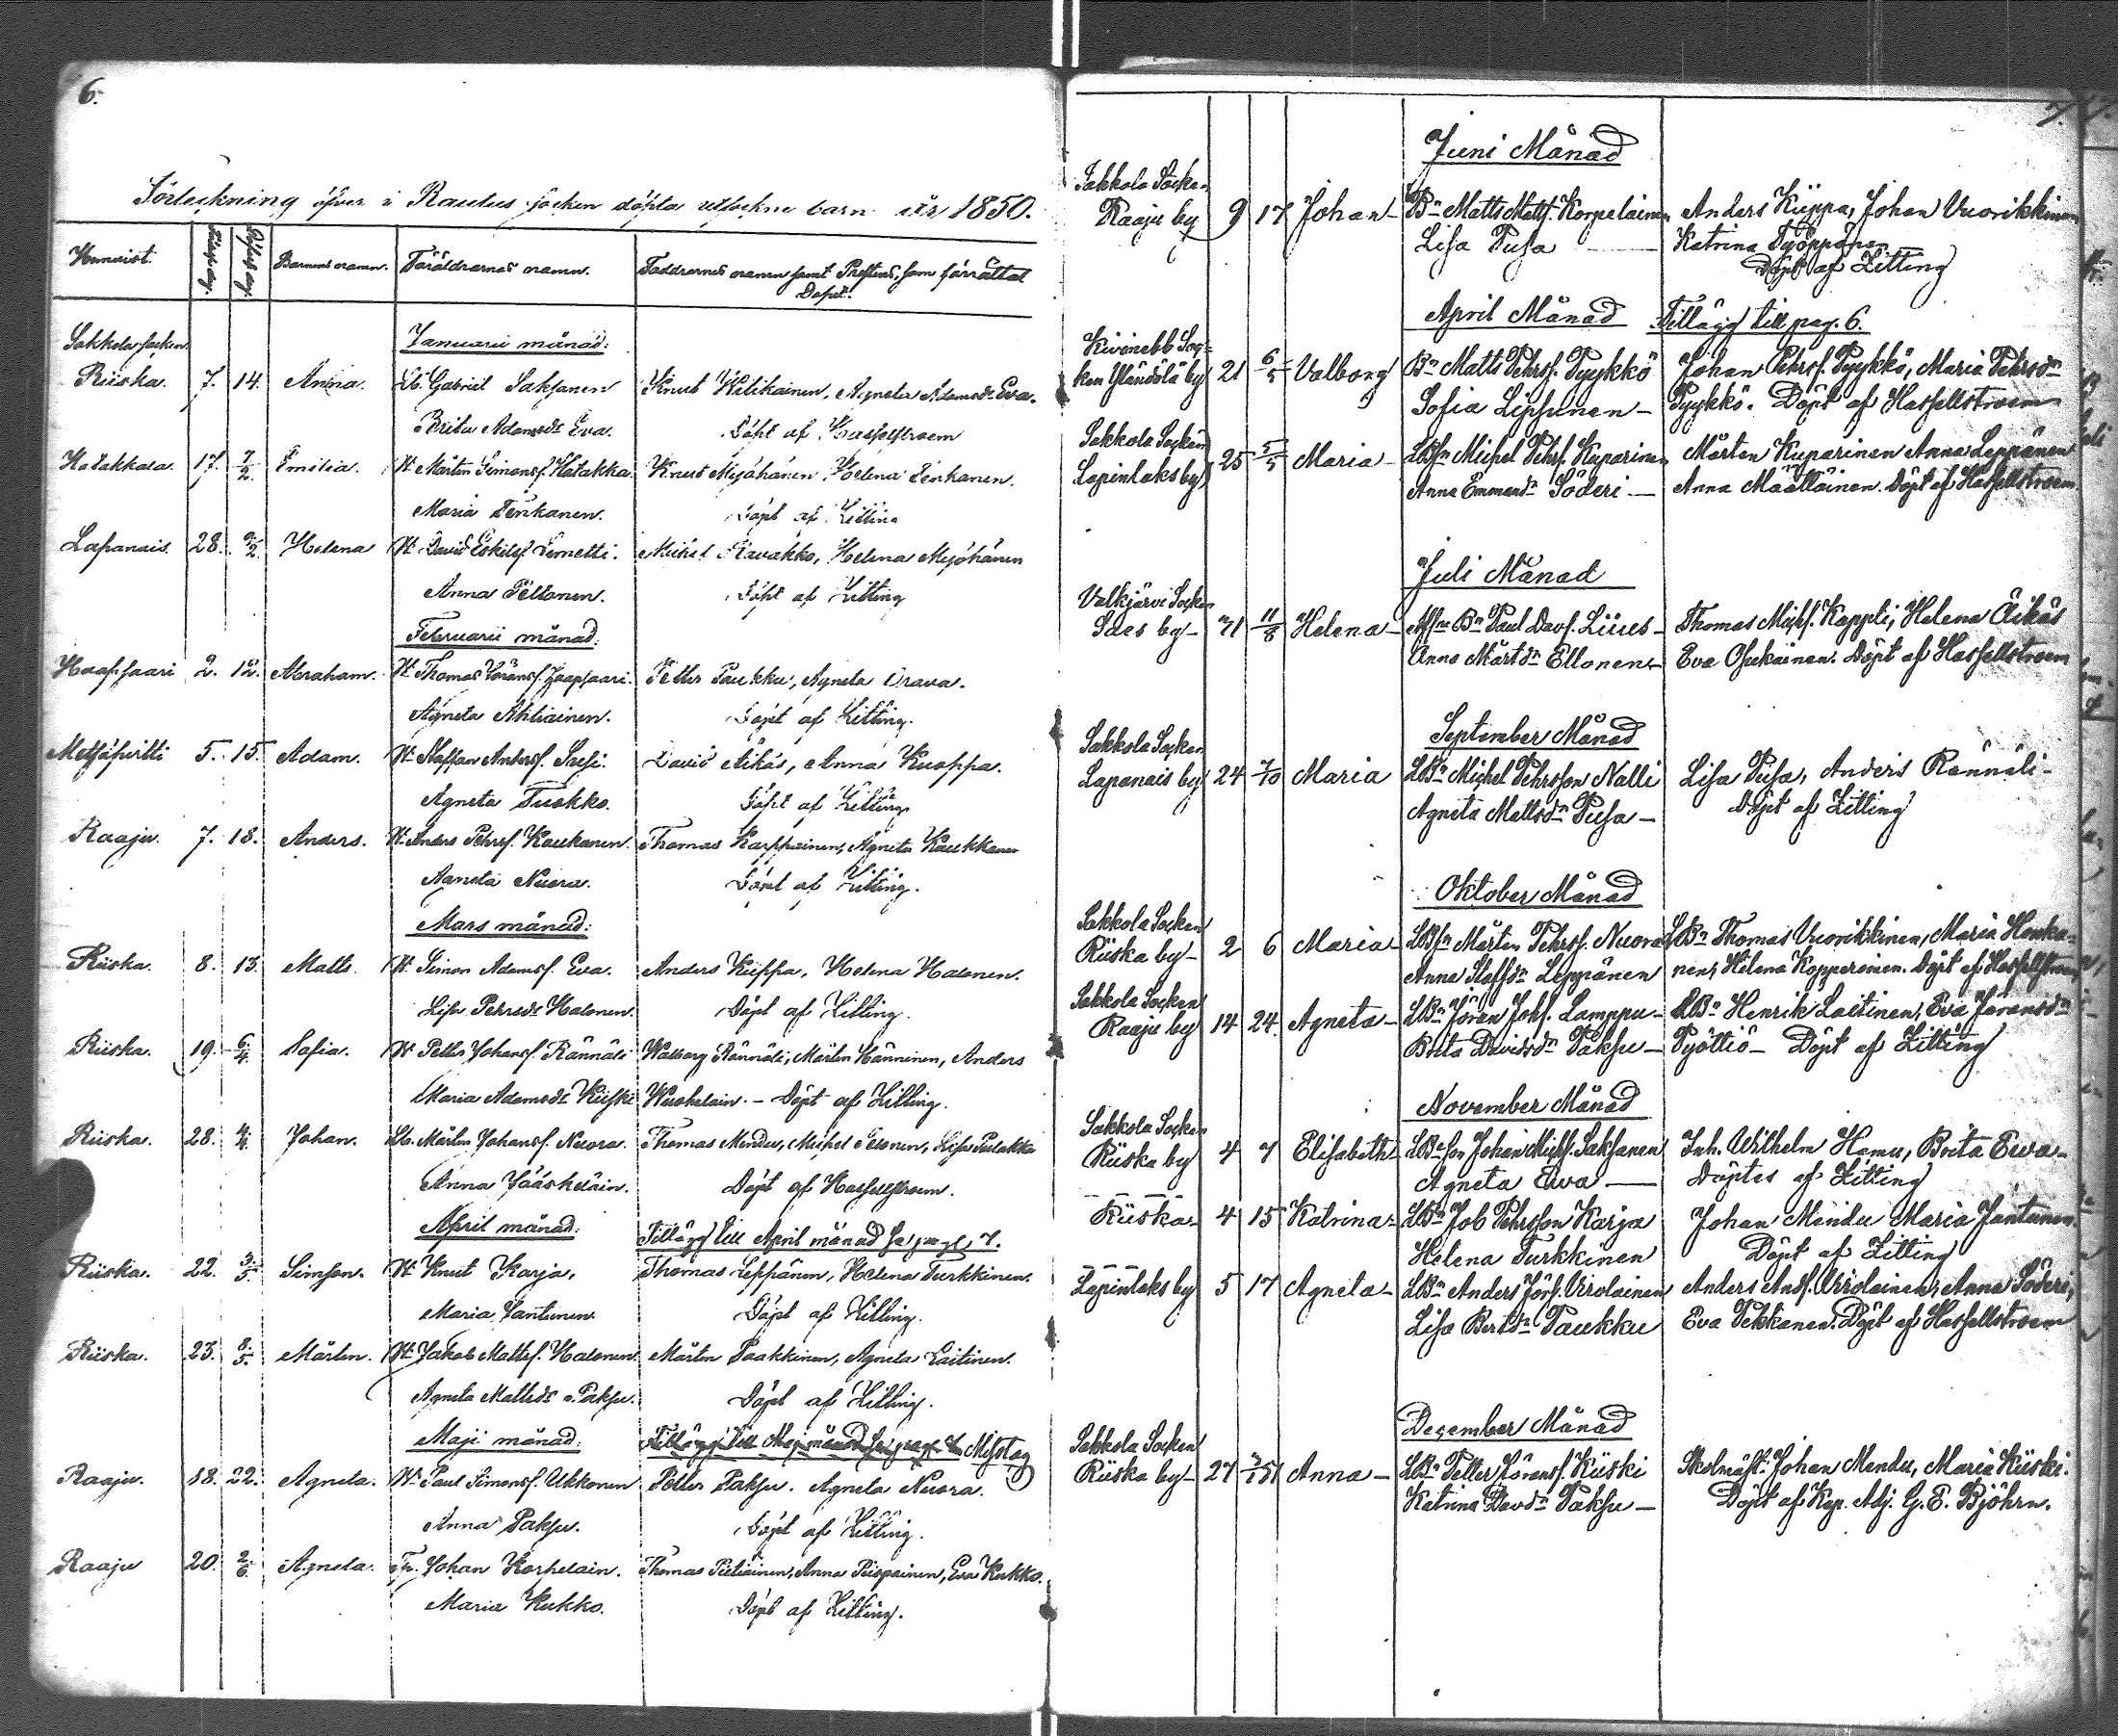 6.
Förteckning öfver i Rautus socken döpta utsockne barn år 1850.
Hemvist. Födelse dag. Döpelse dag. Barnens namn. Föräldrarnes namn. Faddrarnes namn samt Prestens, som förrättat
Dopet.
Sakkola socken. Januarii månad:
Riiska. 7. 14. Anna. Lb. Gabriel Saksanen Knut Wilikainen, Agneta Adamsdr Eva.
Brita Adamsdr Eva. Döpt af Hasselstroem
Hatakkala. 17. 7/2. Emilia. Mårten Simonsf. Hatakka Knut Myöhänen, Helena Tenkanen.
Maria Tenkanen. Döpt af Zitting
Lapanais. 28. 9/2. Helena David Eskilsf. Lemetti. Michel Ravakko, Helena Myöhänen
Anna Peltonen. Döpt af Zitting
Februarii månad:
Haapsaari 2. 12. Abraham. Thomas Göransf. Haapsaari. Petter Paukku, Agneta Orava.
Agneta Ahtiainen. Döpt af Zitting.
Metsäpirtti 5. 15. Adam. Staffan Andersf. David Äikäs, Anna Kuoppa.
Agneta Tuokko. Döpt af Zitting
Raaju. 7. 18. Anders. Anders Pehrsf. Kaukanen. Thomas Karppainen, Agneta Kaukkanen
Agneta Nuora. Döpt af Zitting.
Mars månad:
Riiska. 8. 13. Matts. Simon Adamsf. Eva. Anders Kiippa, Helena Halonen.
Lisa Pehrsdr Halonen. Döpt af Zitting.
Riiska. 19. 6/4. Sofia. Petter Johansf. Rännäli Walborg Rännäli, Mårten Hänninen, Anders
Maria Adamsdr Kiiski. – Döpt af Zitting.
Riiska. 28. 4/4. Johan. Lb. Mårten Johansf. Nuora. Thomas Mendu, Michel Ellonen, Lisa Pulakka
Anna Jääskeläin. Döpt af Hasselstroem.
April månad: Tillägg till April månad se pag. 7.
Riiska. 22. 3/5. Simson. Knut Karja, Thomas Leppänen, Helena Turkkinen.
Maria Jantunen. Döpt af Zitting.
Riiska. 23. 8/5. Mårten. Jakob Mattsf. Halonen. Mårten Paakkinen, Agneta Laitinen.
Agneta Mattsdr Paksu. Döpt af Zitting.
Maji månad: Tillägg till Maj månad se pag. 7 Misstag
Raaju. 18. 22. Agneta. Paul Simonsf. Ukkonen Petter Paksu. Agneta Nuora.
Anna Paksu. Döpt af Zitting.
Raaju 20. 2/6. Agneta. Johan Korpelain. Thomas Pietiäinen, Anna Piispainen, Eva Kukko.
Maria Kukko. Döpt af Zitting.
7.
Juni Månad
Sakkola Socken
Raaju by 9 17 Johan – Bn Matts Mattsf. Korpelainen Anders Kiippa, Johan Vuorikkinen
Lisa Pusa Katrina Työppönen
Döpt af Zitting
April Månad Tillägg till pag. 6.
Kivinebb Soc-
ken Yländölä by 21 6/5 Valborg Bn Matts Pehrsf. Pyykkö Johan Pehrsf. Pyykkö, Maria Pehrsdr
Sofia Lipsunen – Pyykkö. Döpt af Hasselstroem
Sakkola Socken
Lapinlaks by 25 5/5 Maria – LBfn Michel Pehrsf. Kuparinen Mårten Kuparinen Anna Leppänen
Anna Emmandr Söderi – Anna Määttäinen. Döpt af Hasselstroem.
Juli Månad
Valkjärvi Socken
by – 31 11/8 Helena – Bn Paul Davsf. Liires – Thomas Michsf. Kappli, Helena Äikäs
Anna Märtsdr Ellonen – Eva Ohukainen. Döpt af Hasselstroem
September Månad
Sakkola Socken
Lapanais by 24 7/10 Maria LBn Michel Pehrsson Nalli Lisa Pusa, Anders Rännäli –
Agneta Mattsdr Pusa – Döpt af Zitting
Oktober Månad
Sakkola Socken
Riiska by – 2 6 Maria – LBfn Mårten Pehrsf. Nuora LBn Thomas Vuorikkinen, Maria Honka-
Anna Staffsdr Leppänen nen, Helena Kopperoinen. Döpt af Hasselstroem
Sakkola Socken
Raaju by 14 24. Agneta – LBn Jöran Johsf. Lamppu – LBn Henrik Laitinen, Eva Jöransdr
Brita Davidsdr Paksu – Pyöttiö – Döpt af Zitting
November Månad
Sakkola Socken
Riiska by 4 7 Elisabeth LBn son Johan Michsf. Saksanen Inh. Wilhelm Hämu, Brita Ewa –
Agneta Ewa — Döptes af Zitting
Riiska – 4 15 Katrina – LBn Job Pehrsson Karja Johan Mendu Maria Jantunen.
Helena Turkkinen Döpt af Zitting
Lapinlaks by 5 17 Agneta – LBn Anders Jörsf. Virolainen Anders Andsf. Virolainen, Anna Söderi,
Lisa Bertsdr Paukku Eva Pekkanen. Döpt af Hasselstroem
December Månad
Sakkola Socken
Riiska by – 27 Anna – LBn Petter Göransf. Kiiski Johan Mendu, Maria Kiiski.
Katrina Davdr Paksu – Döpt af Kap. Adj. G. E. Bjöhrn.